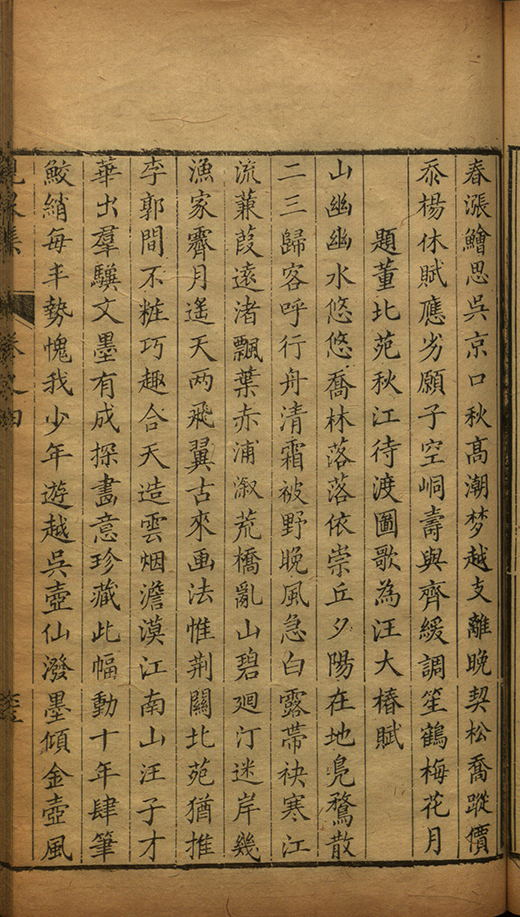 春漲鱠思吳京口秋高潮梦越支離晚契松喬蹤價
忝楊休賦應劣願子空峒壽與齊緩調笙鶴梅花月
題董北苑秋江待渡圖歌為汪大椿賦
山幽幽水悠悠喬林落落依崇丘夕陽在地鳧鶩散
二三歸客呼行舟清霜被野晚風急白露蔕袂寒江
流蒹葭遠渚飄葉赤浦溆荒橋亂山碧廻汀迷岸幾
漁家霽月遙天两飛翼古來画法惟荆關北苑猶推
李郭間不粧巧趣合天造雲烟澹漠江南山汪子才
華出羣驥文墨有成探畵意珍藏此幅動十年肆筆
鮫綃每丰勢愧我少年遊越吳壺仙潑墨傾金壺風